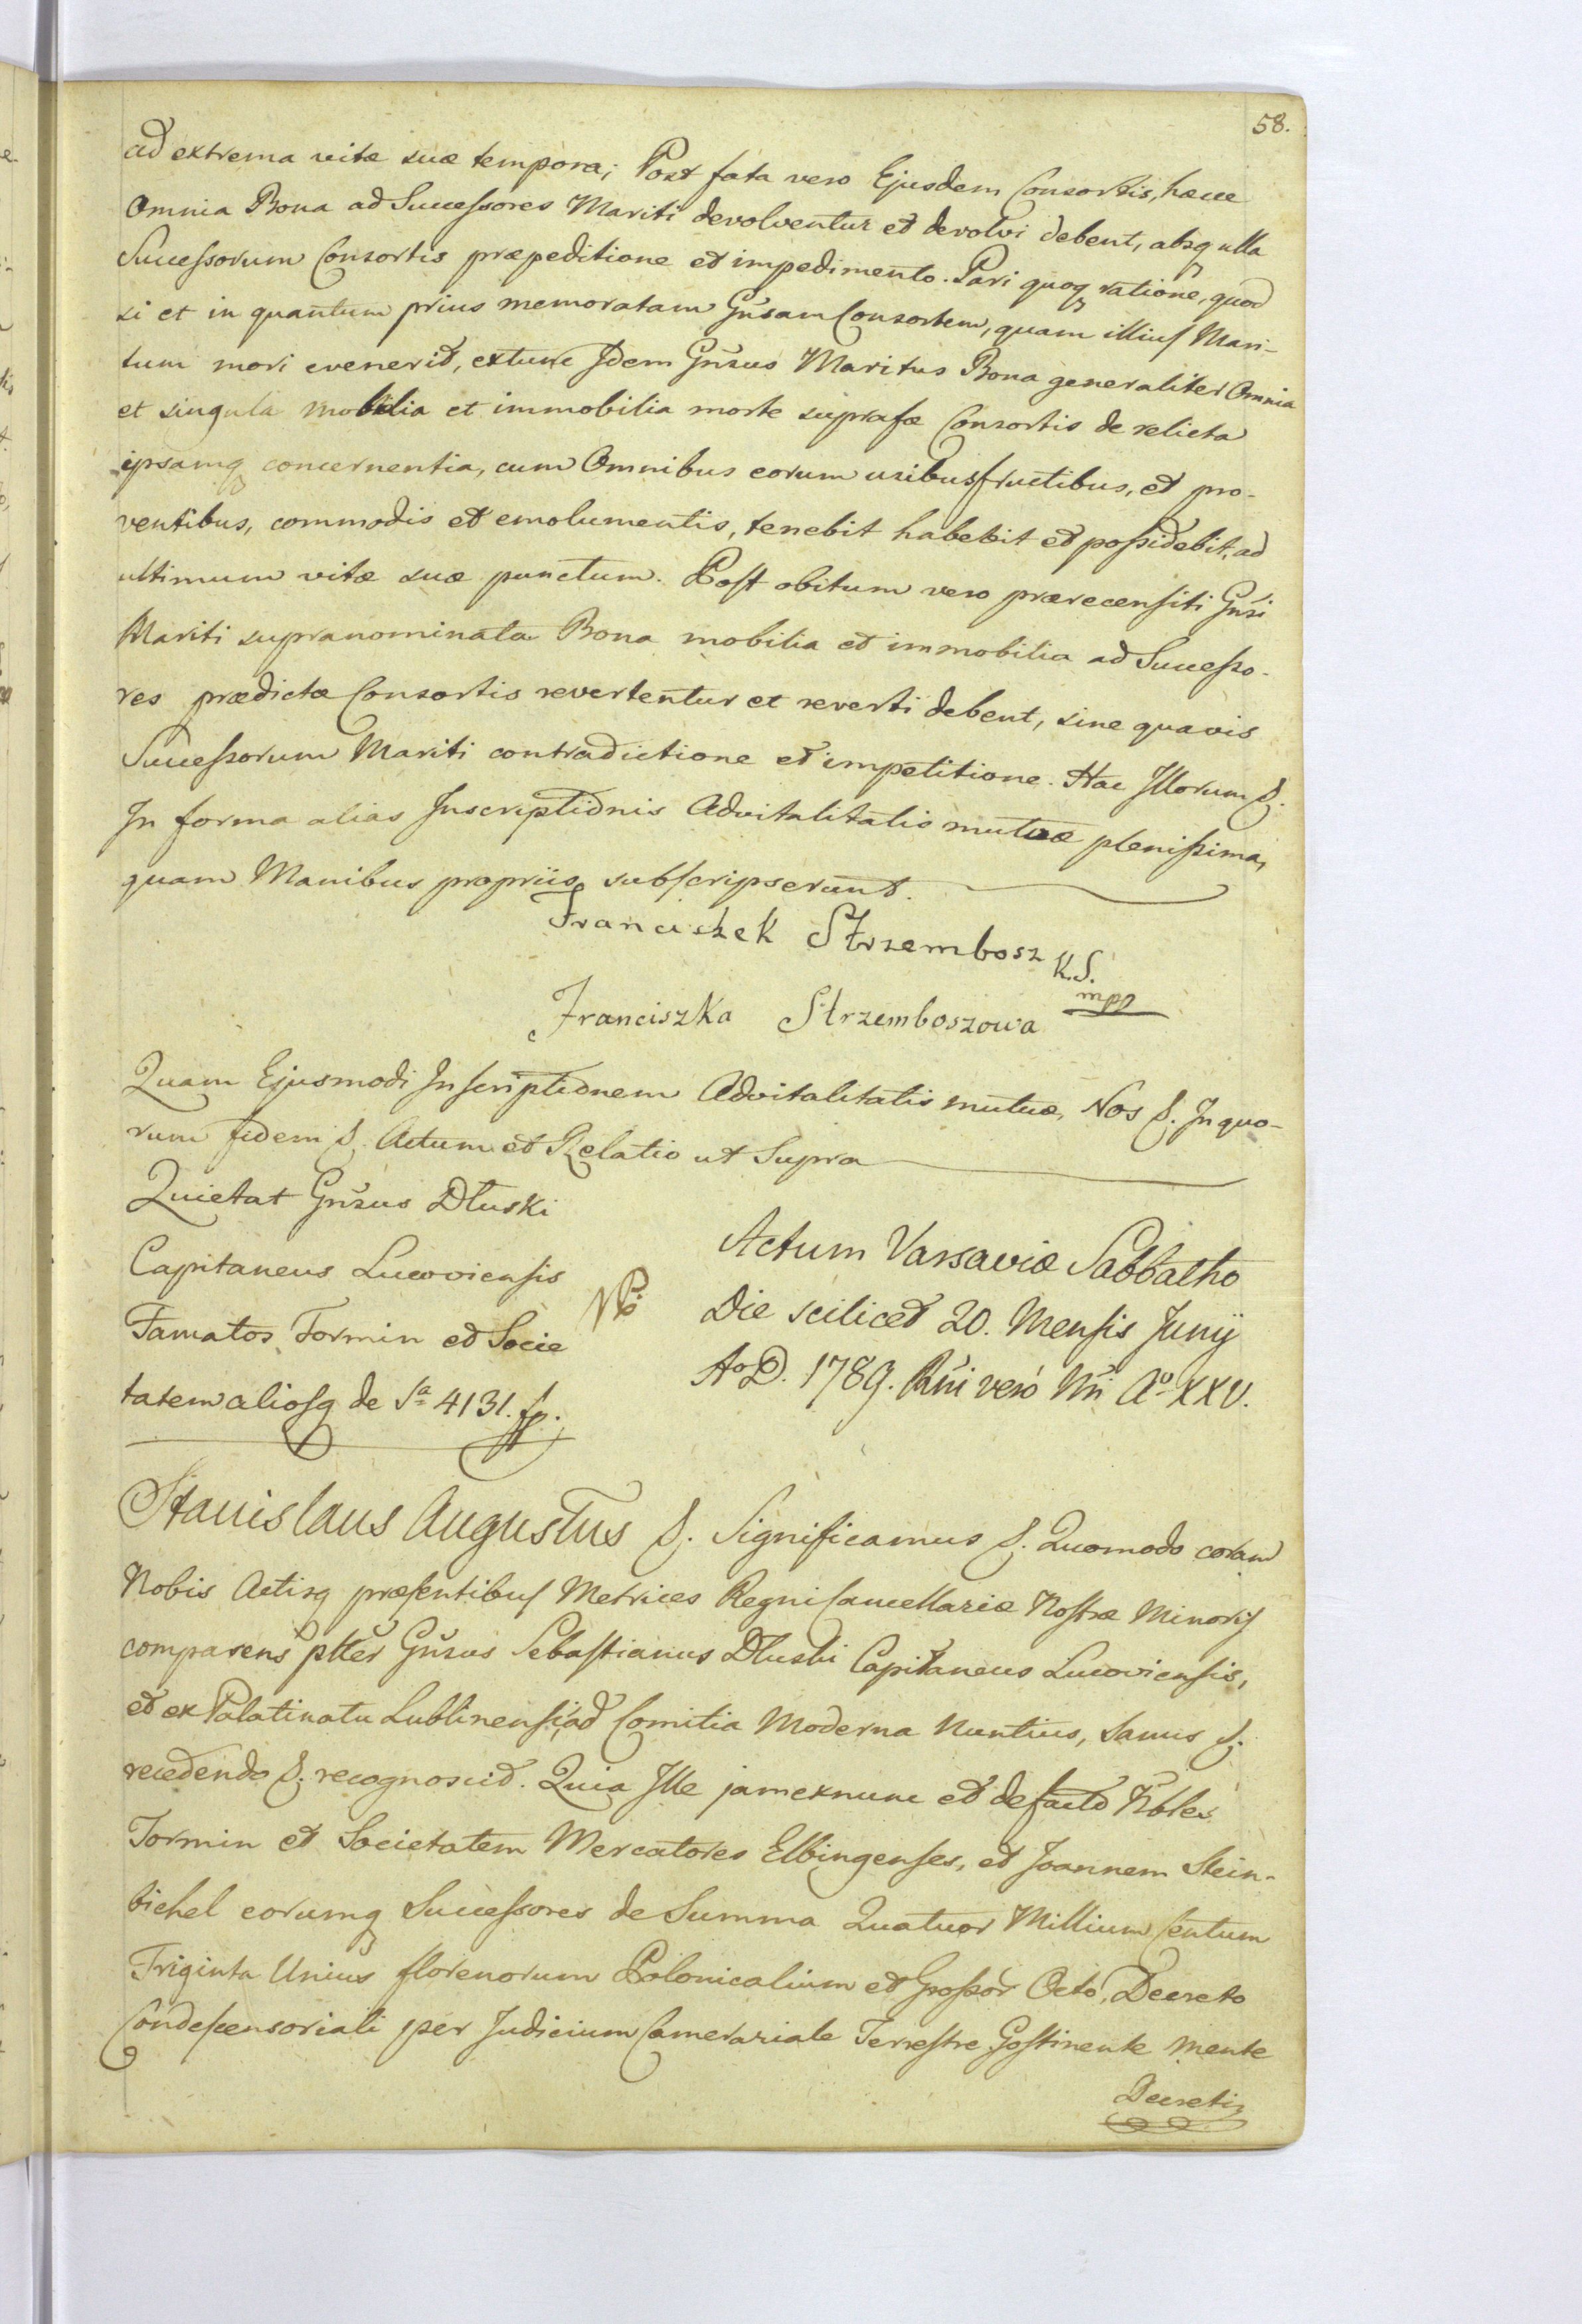 58.
ad extrema vitæ suæ tempora; Post fata vero Ejusdem Consortis, hæce
Omnia Bona ad Successores Mariti devolventur et devolvi debent, absq ulla
Successorum Consortis præpeditione et impedimento. Pari quoq ratione, quod
si et in quantum prius memoratam Gnsam Consortem, quam illius Mari-
tum mori evenerit, extunc Idem Gnsus Maritus Bona generaliter Omnia
et singula mobilia et immobilia morte suprafæ Consortis derelicta
ipsamq concernentia, cum Omnibus eorum usibusfructibus, et pro-
ventibus, commodis et emolumentis, tenebit habebit et possidebit, ad
ultimum vitæ suæ punctum. Post obitum vero prærecensiti Gnsi
Mariti supranominata Bona mobilia et immobilia ad Successo-
res prædictæ Consortis revertentur et reverti debent, sine quavis
Successorum Mariti contradictione et impetitione. Hac Illorum &.
In forma alias Inscriptionis Advitalitatis mutuæ plenissima,
quam Manibus propriis subscripserunt.
Franciszek Strzembosz K.S.
mpp
Franciszka Strzemboszowa
Quam Ejusmodi Inscriptionem Advitalitatis mutuæ, Nos &. In quo-
rum fidem &. Actum et Relatio ut Supra
Quietat Gnsus Dłuski
Capitaneus Lucoviensis
Famatos Formin et Socie
tatem aliosq de Sa 4131. fp.
Actum Varsaviæ Sabbatho
Die scilicet 20. Mensis Junij
Ao D. 1789. Rni vero Nri Ao XXV.
Stanislaus Augustus &. Significamus &. Quomodo coram
Nobis Actisq præsentibus Metrices Regni Cancellariæ Nostræ Minoris
comparens pltter Gnsus Sebastianus Dłuski Capitaneus Lucoviensis,
et ex Palatinatu Lublinensi, ad Comitia Moderna Nuntius, Sanus &.
recedendo &. recognoscit. Quia Ille jam exnunc et defacto Nbles
Formin et Societatem Mercatores Elbingenses, et Joannem Stein-
bichel eorumq Successores de Summa Quatuor Millium Centum
Triginta Unius florenorum Polonicalium et Grossor Octo, Decreto
Condescensoriali per Judicium Camerariale Terrestre Gostinense mente
Decreti